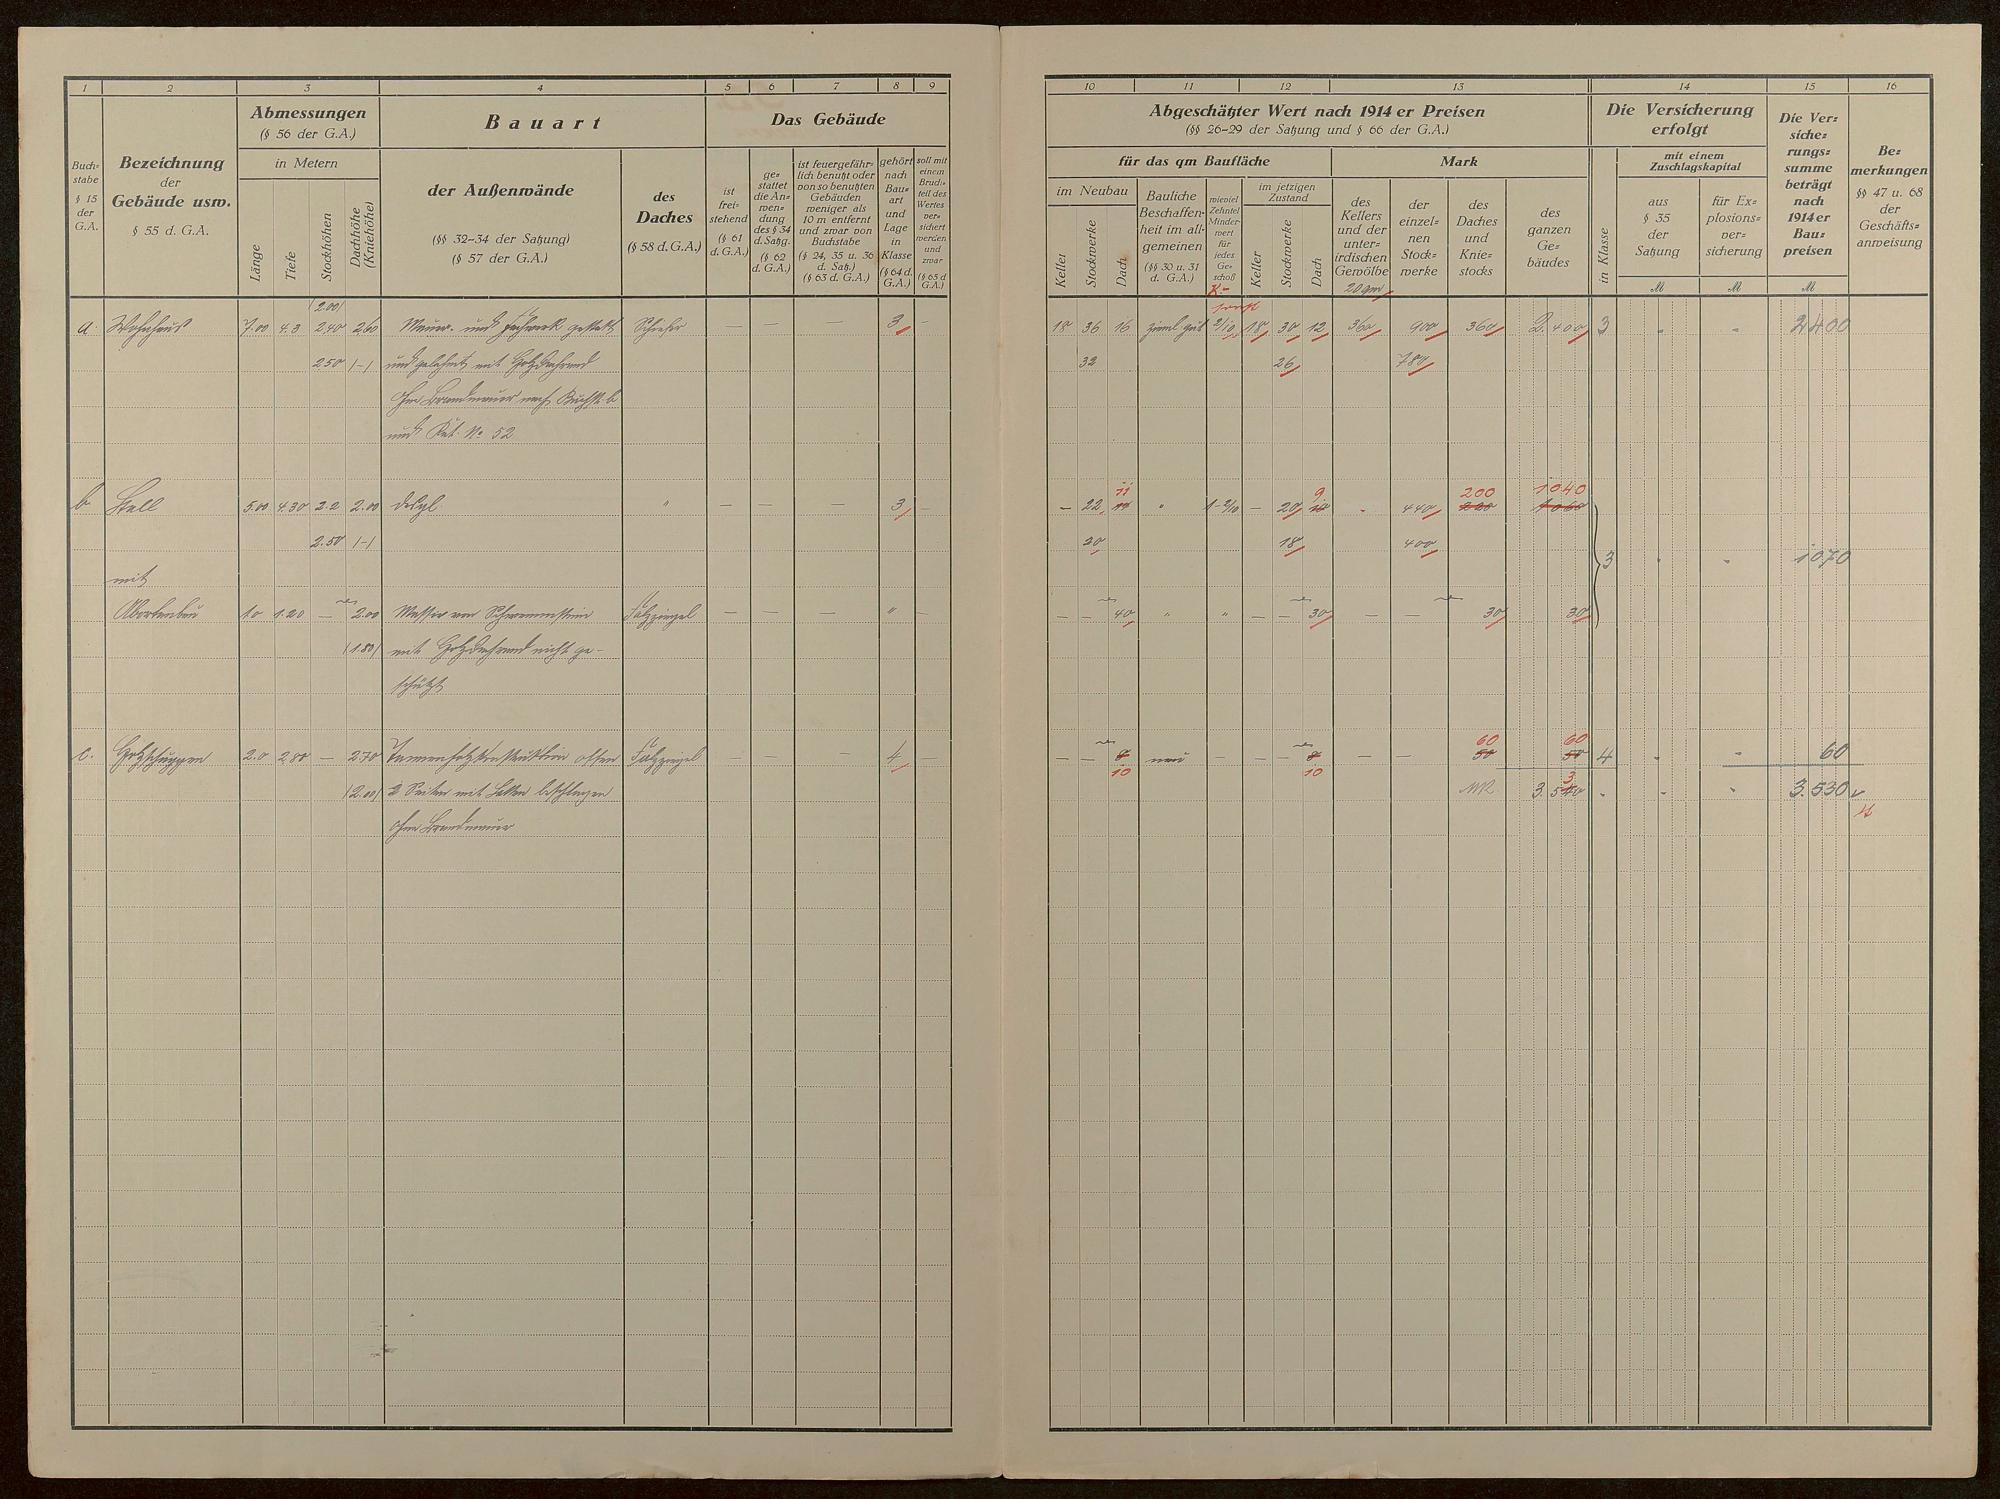 1 2 3 4 5 6 7 8 9
Buch=
stabe
§ 15
der
G.A.
Bezeichnung
der
Gebäude usw.
§ 55 d. G.A.
Abmessungen
(§ 56 der G.A.)
in Metern
Länge
Tiefe
Stockhöhen
Dachhöhe
(Kniehöhe)
Bauart
der Außenwände
(§§ 32–34 der Satzung)
(§ 57 der G.A.)
des
Daches
(§ 58 d. G.A.)
Das Gebäude
ist
frei=
stehend
(§ 61
d. G.A.)
ge=
stattet
die An=
wen=
dung
des § 34
d. Satzg.
(§ 62
d. G.A.)
ist feuergefähr=
lich benutzt oder
von so benutzten
Gebäuden
weniger als
10 m entfernt
und zwar von
Buchstabe
(§ 24, 35 u. 36
d. Satz.)
(§ 63 d. G.A.)
gehört
nach
Bau=
art
und
Lage
in
Klasse
(§ 64 d.
G.A.)
soll mit
einem
Bruch=
teil des
Wertes
ver=
sichert
werden
und
zwar
(§ 65 d.
G.A.)
(2.00)
a. Wohnhaus 7.00 4.3 2,40 2,60 Mauer- und Fachwerk Schiefer — — — 3 —
250 (–) und mit Holzdachrand
ohne Brandmauer nach Buchst. b
und Kat. No 52
b Stall 5.00 4.30 2.2 2.00 desgl " — — — 3 —
2.50 (–)
mit
Abortanbau 1.0 1.20 — 2.00 Massiv von Schwemmstein Falzziegel — — — " —
(1.80) mit Holzdachrand nicht ge-
schützt
c. Holzschuppen 2.0 2,80 — 2.70 Tannenholzkonstruktion offen Falzziegel — — — 4 —
(2.00) 2 Seiten mit Latten beschlagen
ohne Brandmauer
10 11 12 13 14 15 16
Abgeschätzter Wert nach 1914 er Preisen
(§§ 26–29 der Satzung und § 66 der G.A.)
für das qm Baufläche
im Neubau
Keller
Stockwerke
Dach
Bauliche
Beschaffen=
heit im all=
gemeinen
(§§ 30 u. 31
d. G.A.)
wieviel
Zehntel
Minder=
wert
für
jedes
Ge=
schoß
im jetzigen
Zustand
Keller
Stockwerke
Dach
Mark
des
Kellers
und der
unter=
irdischen
Gewölbe
der
einzel=
nen
Stock=
werke
des
Daches
und
Knie=
stocks
des
ganzen
Ge=
bäudes
in Klasse
Die Versicherung
erfolgt
mit einem
Zuschlagskapital
aus
§ 35
der
Satzung
für Ex=
plosions=
ver=
sicherung
Die Ver=
siche=
rungs=
summe
beträgt
nach
1914 er
Bau=
preisen
Be=
merkungen
§§ 47 u. 68
der
Geschäfts=
anweisung
K.– 20 qm M M M
18 36 16 ziml gut 2/10 18 30 12 360 900 360 2.400 3 " " 2400
32 26 780
11 9 200 1040
— 22 " 1-2/10 — 20 - 440
20 18 400
3 " " 1070
— — 40 " " — — 30 — — 30 30
60 60
— — 8 neu — — — 8 — — 50 50 4 " " 60
10 10 3
3.540 " " " 3.530